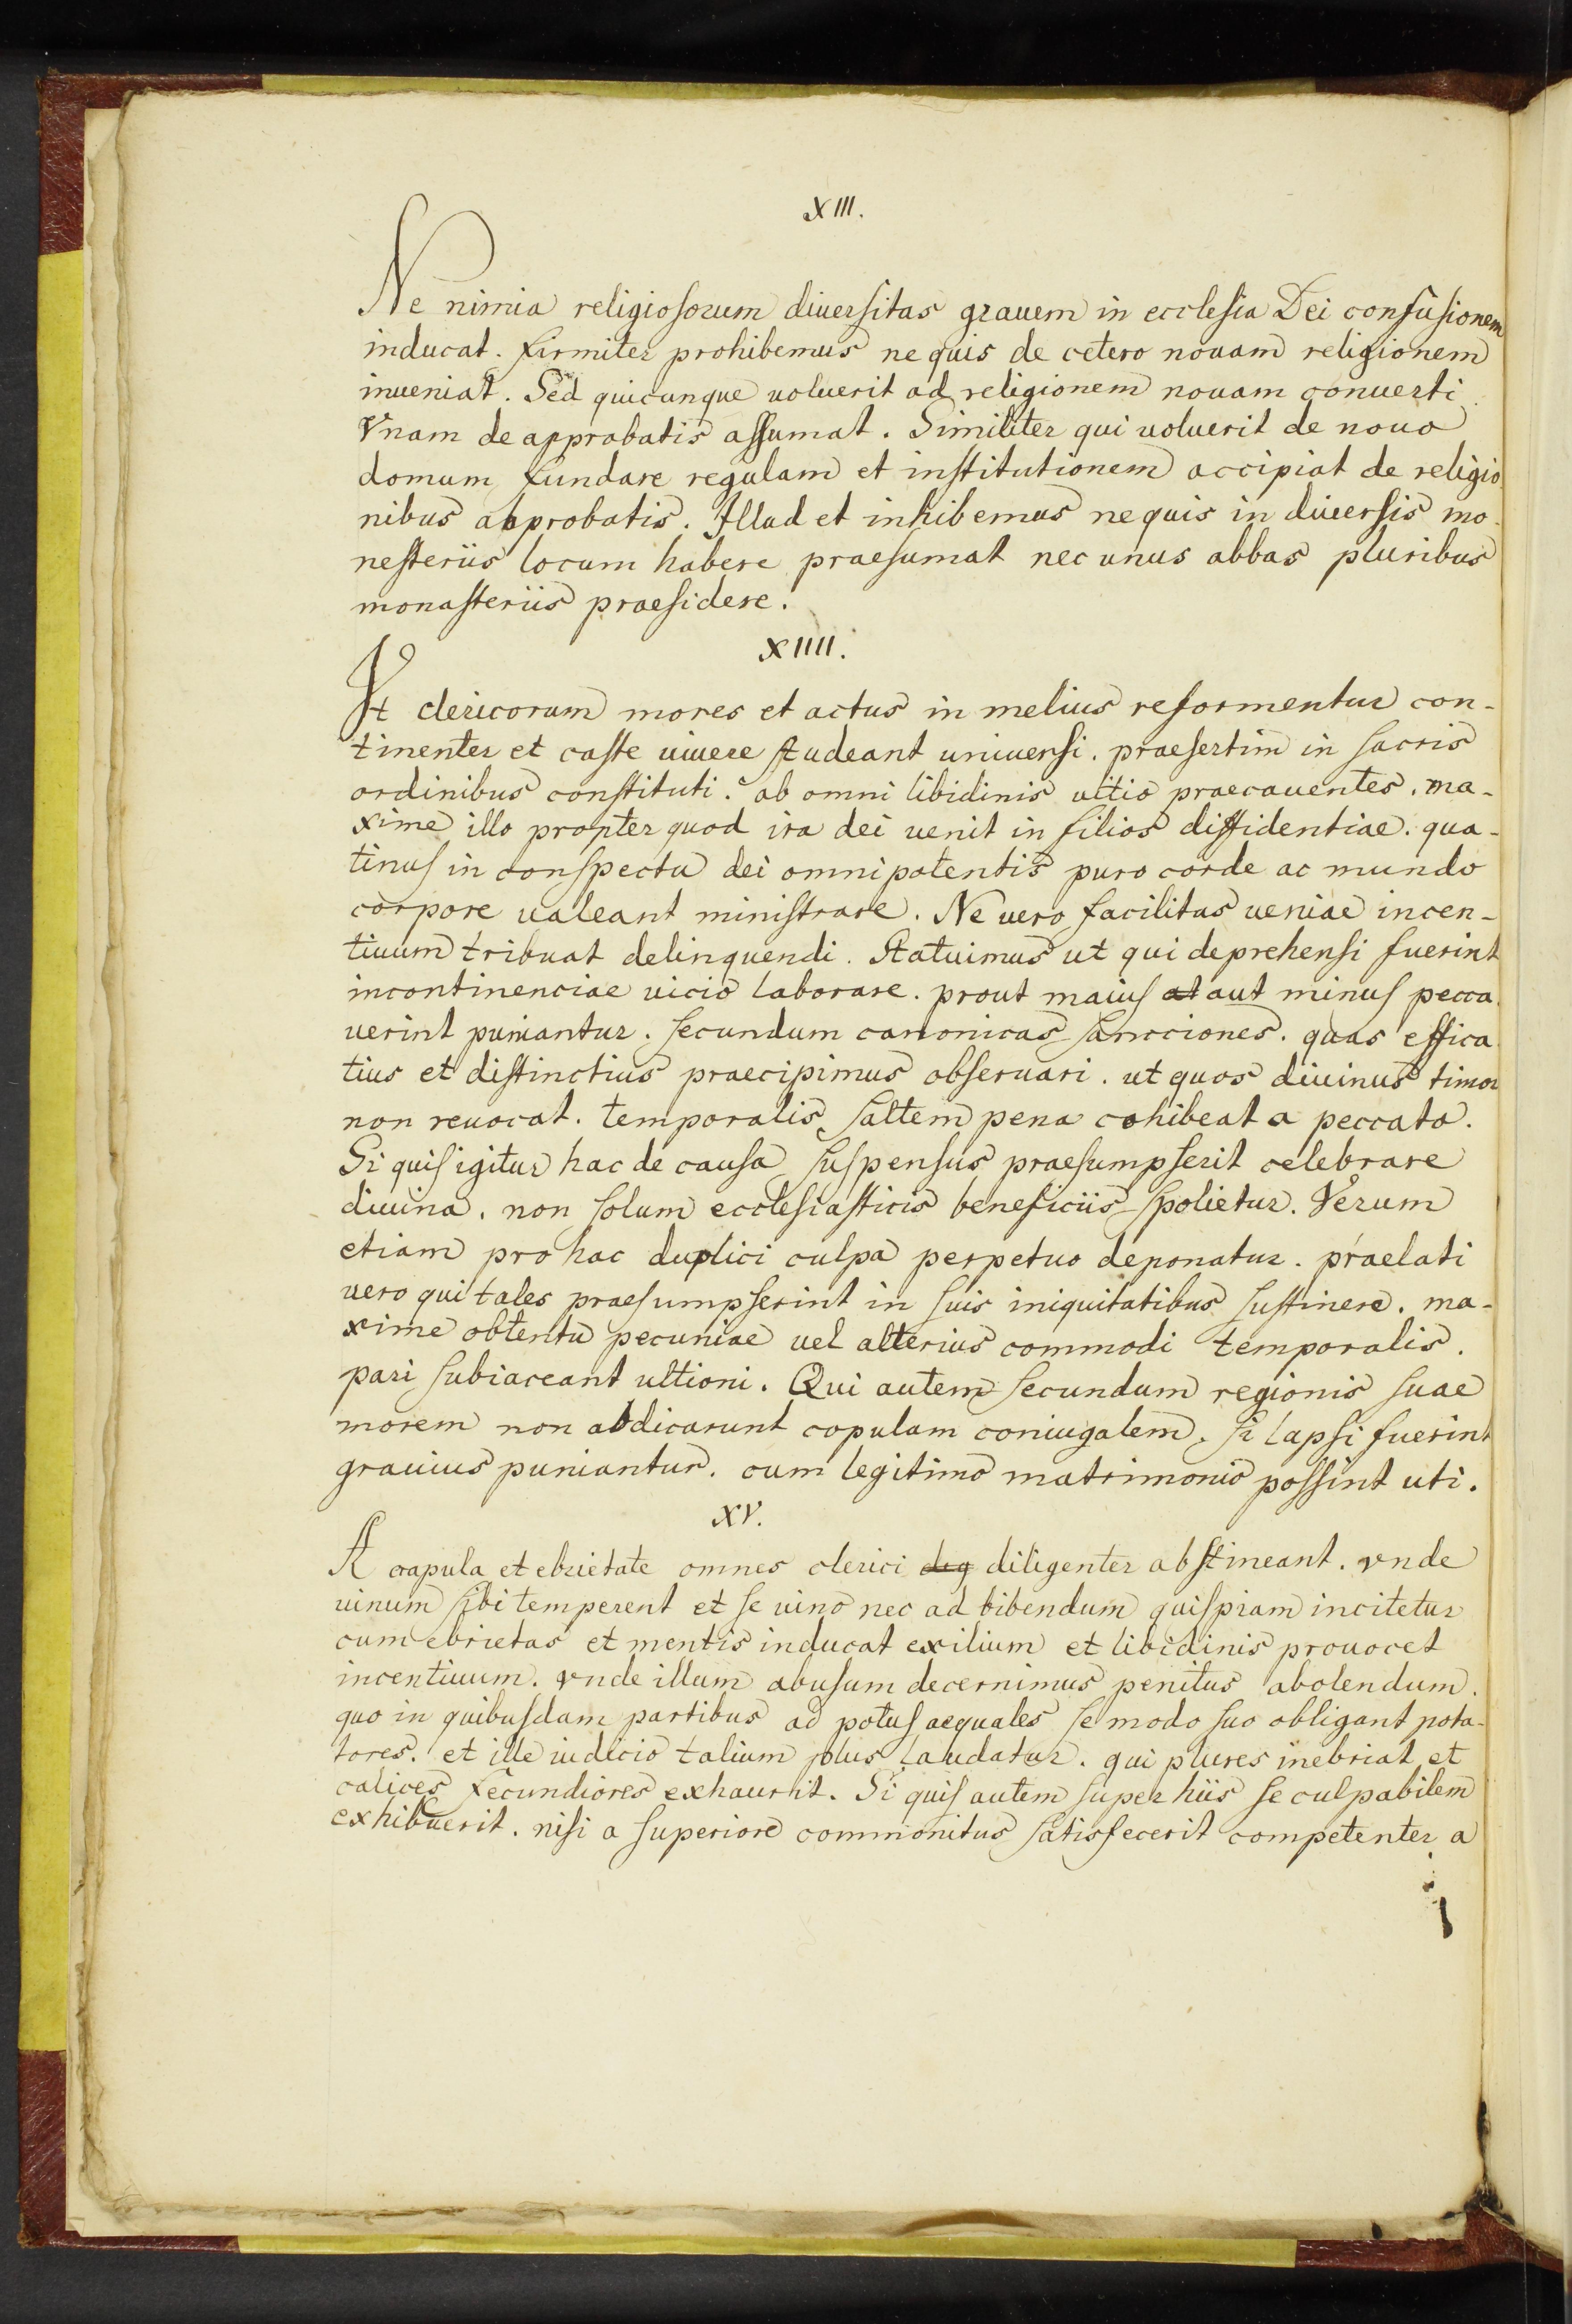 XIII.
Ne nimia religiosorum diuersitas grauem in ecclesia Dei confusionem
inducat. firmiter prohibemus ne quis de cetero nouam religionem
inueniat. Sed quicunque uoluerit ad religionem nouam conuerti
Vnam de approbatis assumat. Similiter qui uoluerit de nouo
domum fundare regulam et institutionem accipiat de religio
nibus abprobatis. Illud et inhibemus ne quis in diuersis mo
nesteriis locum habere praesumat nec unus abbas pluribus
monasteriis praesidere.
XIIII.
Vt clericorum mores et actus in melius reformentur con-
tinenter et caste uiuere studeant uniuersi. praesertim in sacris
ordinibus constituti. ab omni libidinis uitio praecauentes. ma-
xime illo propter quod ira dei uenit in filios diffidentiae. qua-
tinus in conspectu dei omnipotentis puro corde ac mundo
corpore ualeant ministrare. Ne uero facilitas ueniae incen-
tiuum tribuat delinquendi. Statuimus ut qui deprehensi fuerint
incontinenciae uicio laborare. prout maius at aut minus pecca
uerint puniantur. secundum canonicas sancciones. quas effica
tius et distinctius praecipimus obseruari. ut quos diuinus timor
non reuocat. temporalis saltem pena cohibeat a peccato.
Si quis igitur hac de causa suspensus praesumpserit celebrare
diuina. non solum ecclesiasticis beneficiis spolietur. Verum
etiam pro hac duplici culpa perpetuo deponatur. praelati
uero qui tales praesumpserint in suis iniquitatibus sustinere. ma-
xime obtentu pecuniae uel alterius commodi temporalis.
pari subiaceant ultioni. Qui autem secundum regionis suae
morem non abdicarunt copulam coniugalem. si lapsi fuerint
grauius puniantur. cum legitimo matrimonio possint uti.
XV.
A crapula et ebrietate omnes clerici deg diligenter abstineant. vnde
uinum sibi temperent et se uino nec ad bibendum quispiam incitetur
cum ebrietas et mentis inducat exilium et libidinis prouocet
incentiuum. vnde illum abusum decernimus penitus abolendum.
quo in quibusdam partibus ad potus aequales se modo suo obligant pota-
tores. et ille iudicio talium plus laudatur. qui plures inebriat et
calices fecundiores exhaurit. Si quis autem super hiis se culpabilem
exhibuerit. nisi a superiore commonitus satisfecerit competenter a